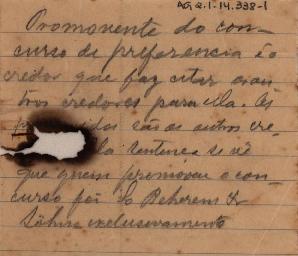 AG 2.1.14.338-1
Promovente do con-
curso de preferencia é o
credor que faz citar ou
tros credores para ella. Os
são os outros cre-
la sentença se vê
que quem promoveu o con-
curso foi So Beherem &
Sohne exclusivamente